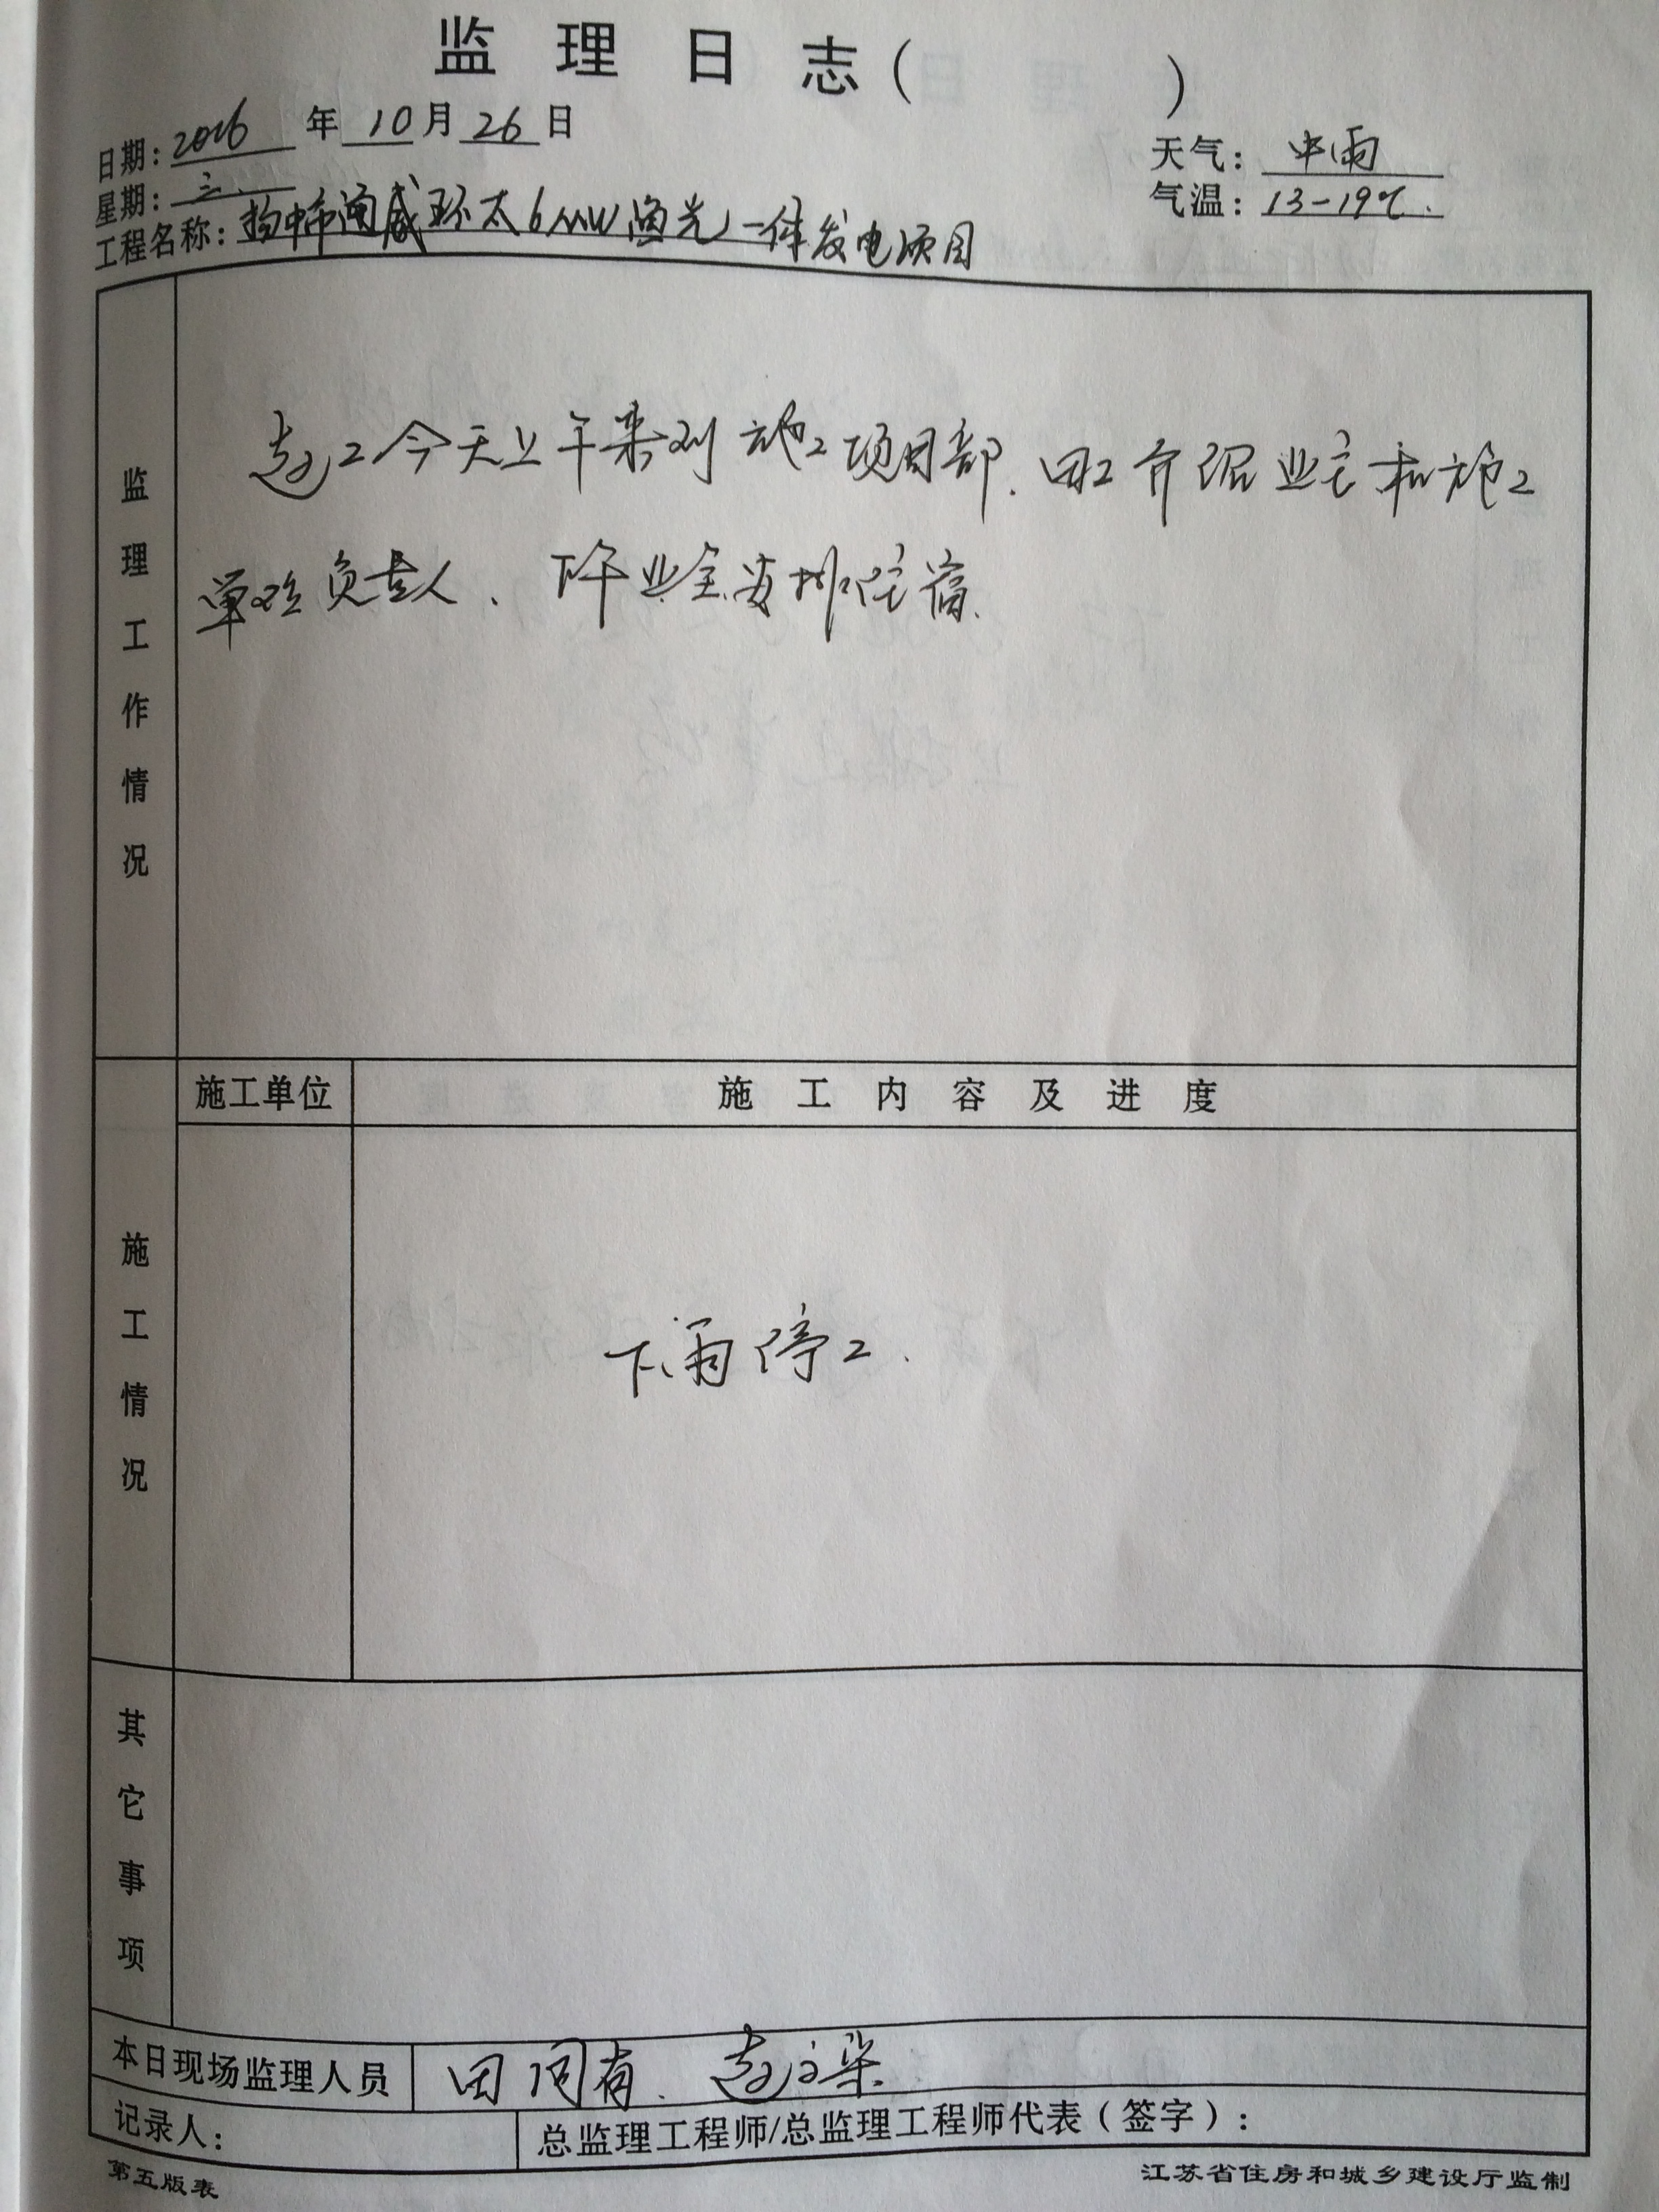 监理日志( )
日期:2016 年 10 月 26 日
天气:中雨
星期:三
气温:13-19℃.
工程名称:扬中市通威环太6MW渔光一体发电项目
监理工作情况
赵工今天上午来到施工项目部.田工介绍业主和施工
单位负责人.下午业主安排住宿.
施工单位
施工内容及进度
施工情况
下雨停工.
其它事项
本日现场监理人员 田同有. 赵文梁
记录人:
总监理工程师/总监理工程师代表(签字):
第五版表
江苏省住房和城乡建设厅监制